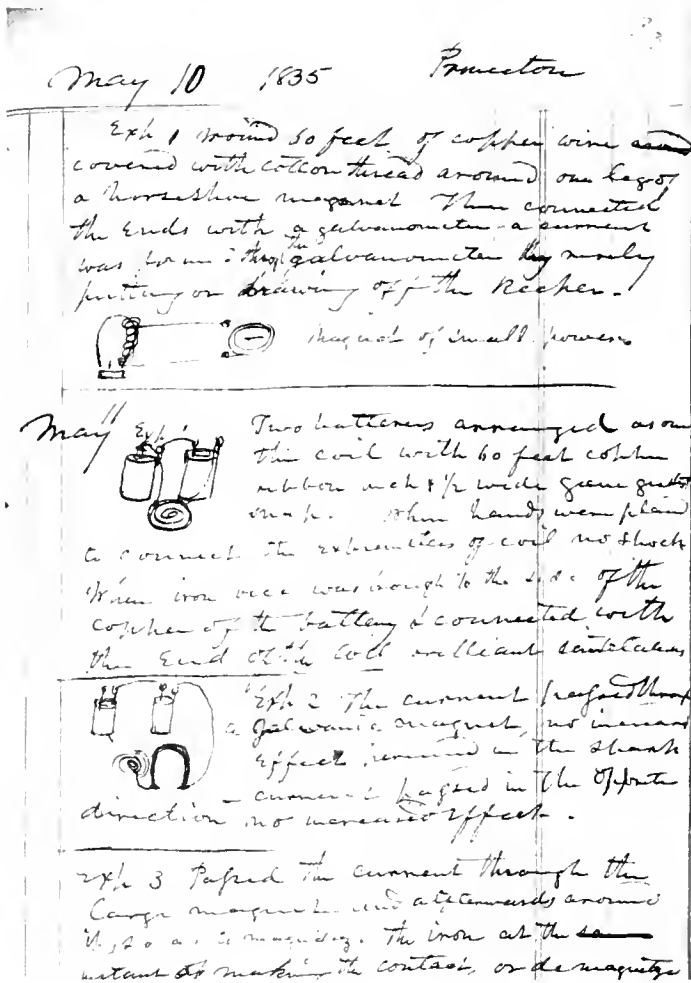 May 10 1835 Princeton
Exp 1 wound 50 feet of copper wire
covered with cotton thread around one leg of
a horseshoe magnet Then connected
the ends with a galvanometer - a current
was through the galvanometer by merely
putting on drawing off the Keeper -
Magnet of small power
May 11 Exp 1 Two batteries arranged as one
the coil with 60 feet copper
ribbon inch & 1/2 wide gave great
snap. When hands were placed
to connect the extremities of coil no shock
When iron was brought to the side of the
copper of the battery & connected with
the End of the Coil brilliant scintillations
Exp 2 The current passed through
a Galvanic magnet, no increased
Effect in the spark
- current passed in the opposite
direction no increased effect.
Exp 3 Passed the current through the
Large magnet and afterwards around
it, so as to magnetize the iron at the
instant of making the contact, or demagnetize